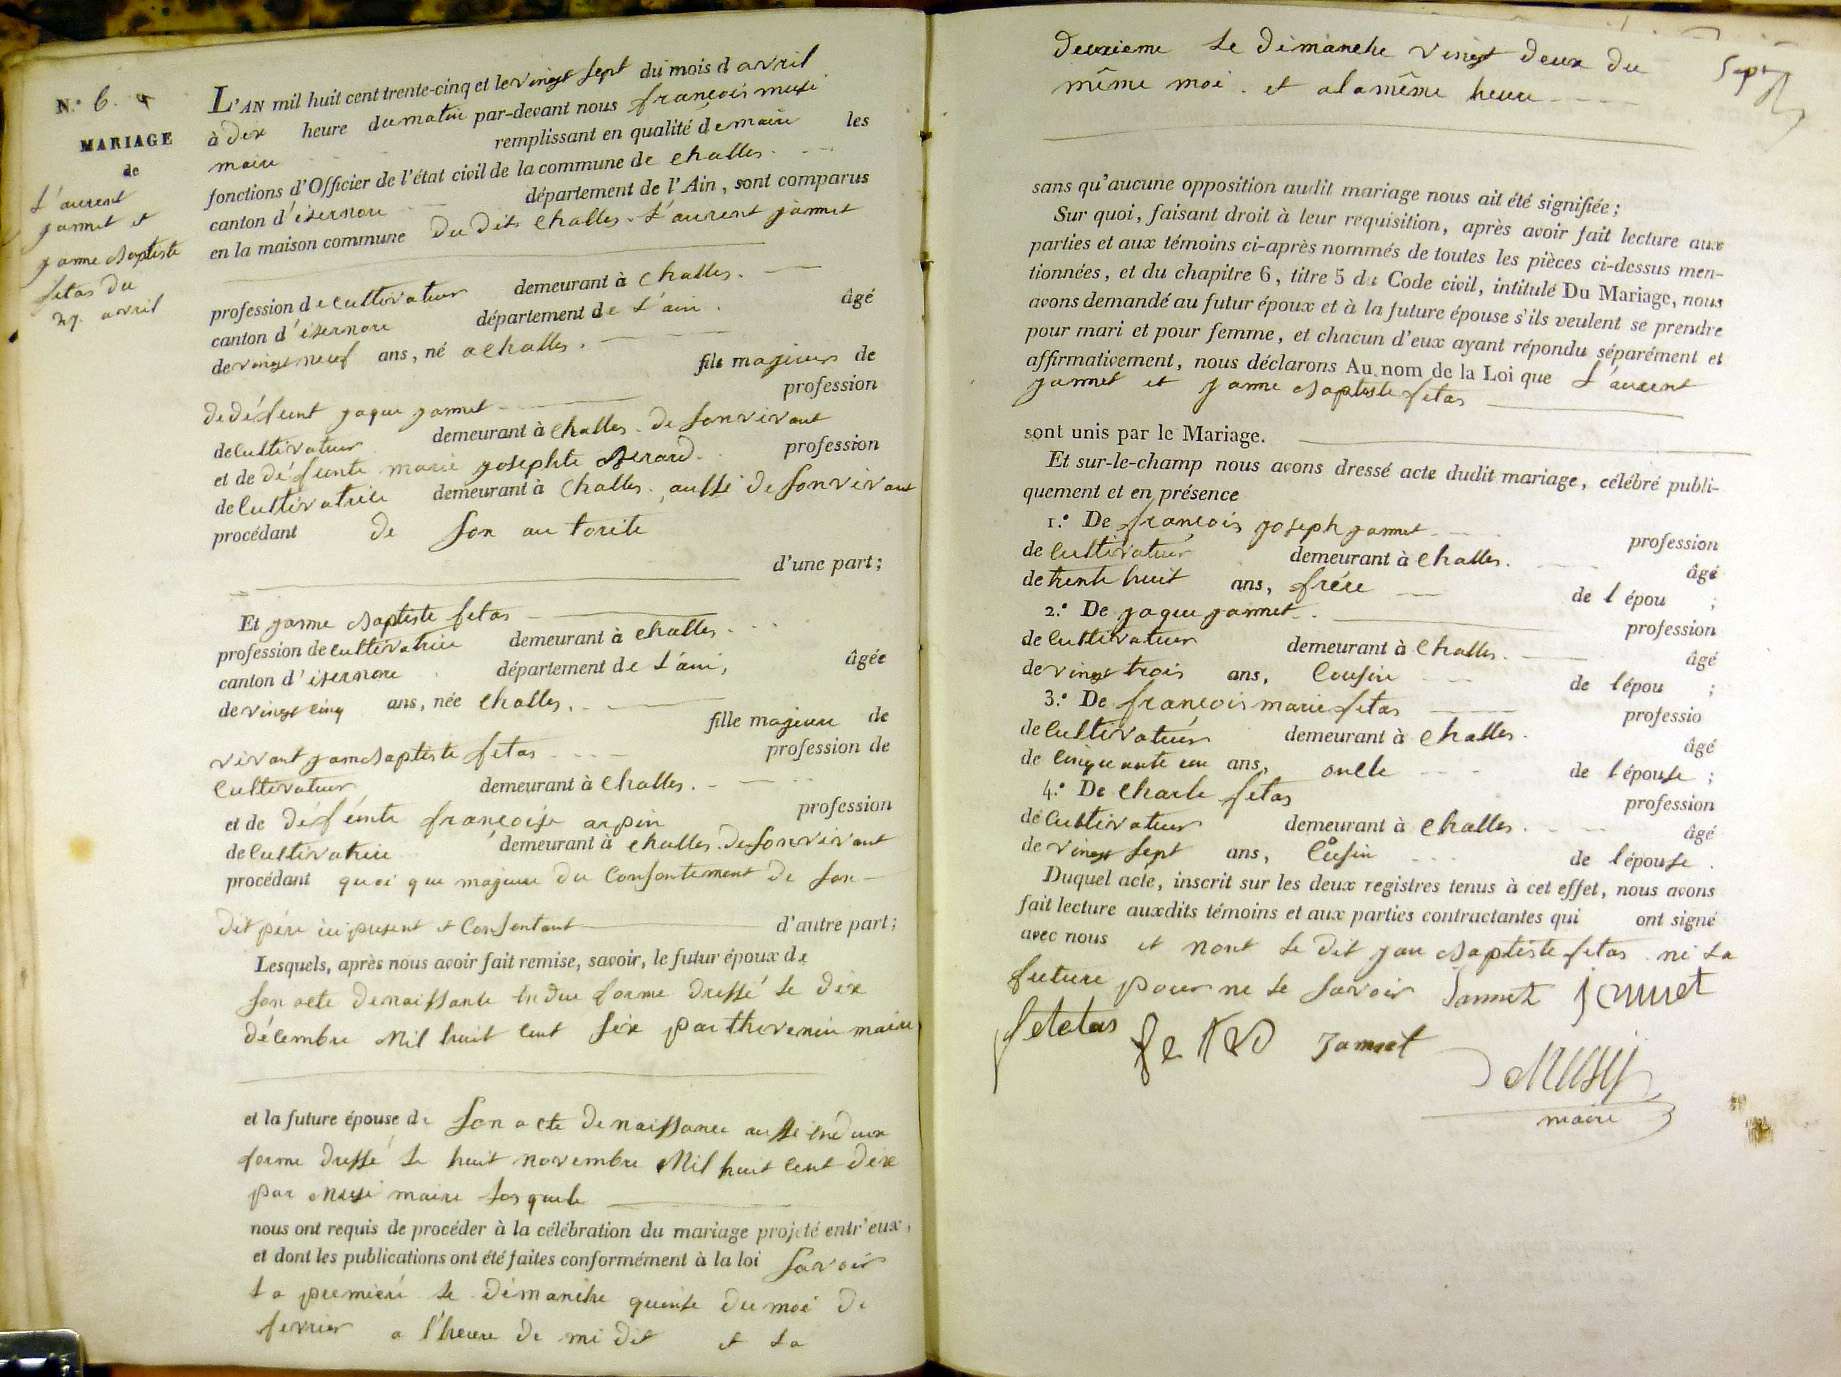 N.º 6.
MARIAGE
de
L'aurent
jannet et
janne Baptiste
fetas du
27. avril
L'AN mil huit cent trente-cinq et le vingt sept du mois d avril
à dix heure du matin par-devant nous françois musi
maire remplissant en qualité de maire les
fonctions d'Officier de l'état civil de la commune de challes.
canton d'isernore département de l'Ain, sont comparus
en la maison commune du dits challes. L'aurent jannet
profession de cultivateur demeurant à challes.
canton d'isernore département de L'ain. âgé
de vingt neuf ans, né a challes.
fils majeur de
profession
de défeunt jaque jannet
de cultivateur demeurant à challes. de son vivant
et de défeunte marie josephte Berard. profession
de cultivatrice demeurant à challes. aussi de son vivant
procédant de son autorite
d'une part;
Et janne Baptiste fetas
profession de cultivatrice demeurant à challes.
canton d'isernore département de L'ain, âgée
de vingt cinq ans, née challes.
fille majeure de
vivant jan Baptiste fetas profession de
cultivateur demeurant à challes.
et de déféunte françoise arpin profession
de cultivatrice demeurant à challes. de son vivant
procédant quoi que majeure du consontement de son
dit père ici present et consentant d'autre part;
Lesquels, après nous avoir fait remise, savoir, le futur époux de
son acte de naissante en due forme dressé le dix
décembre Mil huit cent six par thevenin maire
et la future épouse de son acte de naissance aussi en due
forme dressé le huit novembre Mil huit cent dix
par Musi maire lesquels
nous ont requis de procéder à la célébration du mariage projeté entr'eux,
et dont les publications ont été faites conformément à la loi savoir
la premieré le dimanche quinse du moi de
fevrier a l'heure de mi dit et la
deuxieme le dimanche vingt deux du
même moi. et a la même heure
sans qu'aucune opposition audit mariage nous ait été signifiée;
Sur quoi, faisant droit à leur requisition, après avoir fait lecture aux
parties et aux témoins ci-après nommés de toutes les pièces ci-dessus men-
tionnées, et du chapitre 6, titre 5 du Code civil, intitulé Du Mariage, nous
avons demandé au futur époux et à la future épouse s'ils veulent se prendre
pour mari et pour femme, et chacun d'eux ayant répondu séparément et
affirmativement, nous déclarons Au nom de la Loi que L'aurent
jannet et janne Baptiste fetas
sont unis par le Mariage.
Et sur-le-champ nous avons dressé acte dudit mariage, célébré publi-
quement et en présence
1.º De françois joseph jannet profession
de cultivateur demeurant à challes. âgé
de trente huit ans, frére de l épou ;
2.º De jaque jannet. profession
de cultivateur demeurant à challes. âgé
de vingt trois ans, cousin de lépou ;
3.º De françois marie fetas professio
de cultivateur demeurant à challes. âgé
de cinquante un ans, oncle de lépouse ;
4.º De charle fetas profession
de cultivateur demeurant à challes. âgé
de vingt sept ans, cousin de lépouse.
Duquel acte, inscrit sur les deux registres tenus à cet effet, nous avons
fait lecture auxdits témoins et aux parties contractantes qui ont signé
avec nous et nont le dit jan Baptiste fetas. ni la
future pour ne le savoir Jannet jannet
fetetas fetas Jannet
Musy
maire